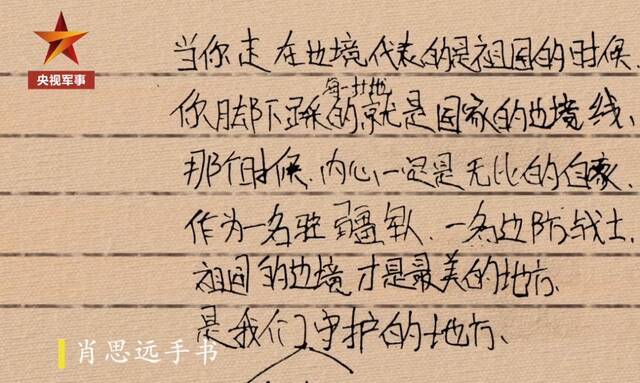 央视军事
当你走在边境代表的是祖国的时候.
每一寸地
你脚下踩的就是国家的边境线,
那个时候.内心一定是无比的自豪.
作为一名驻疆军人.一名边防战士,
祖国的边境才是最美的地方.
是我们守护的地方.
肖思远手书